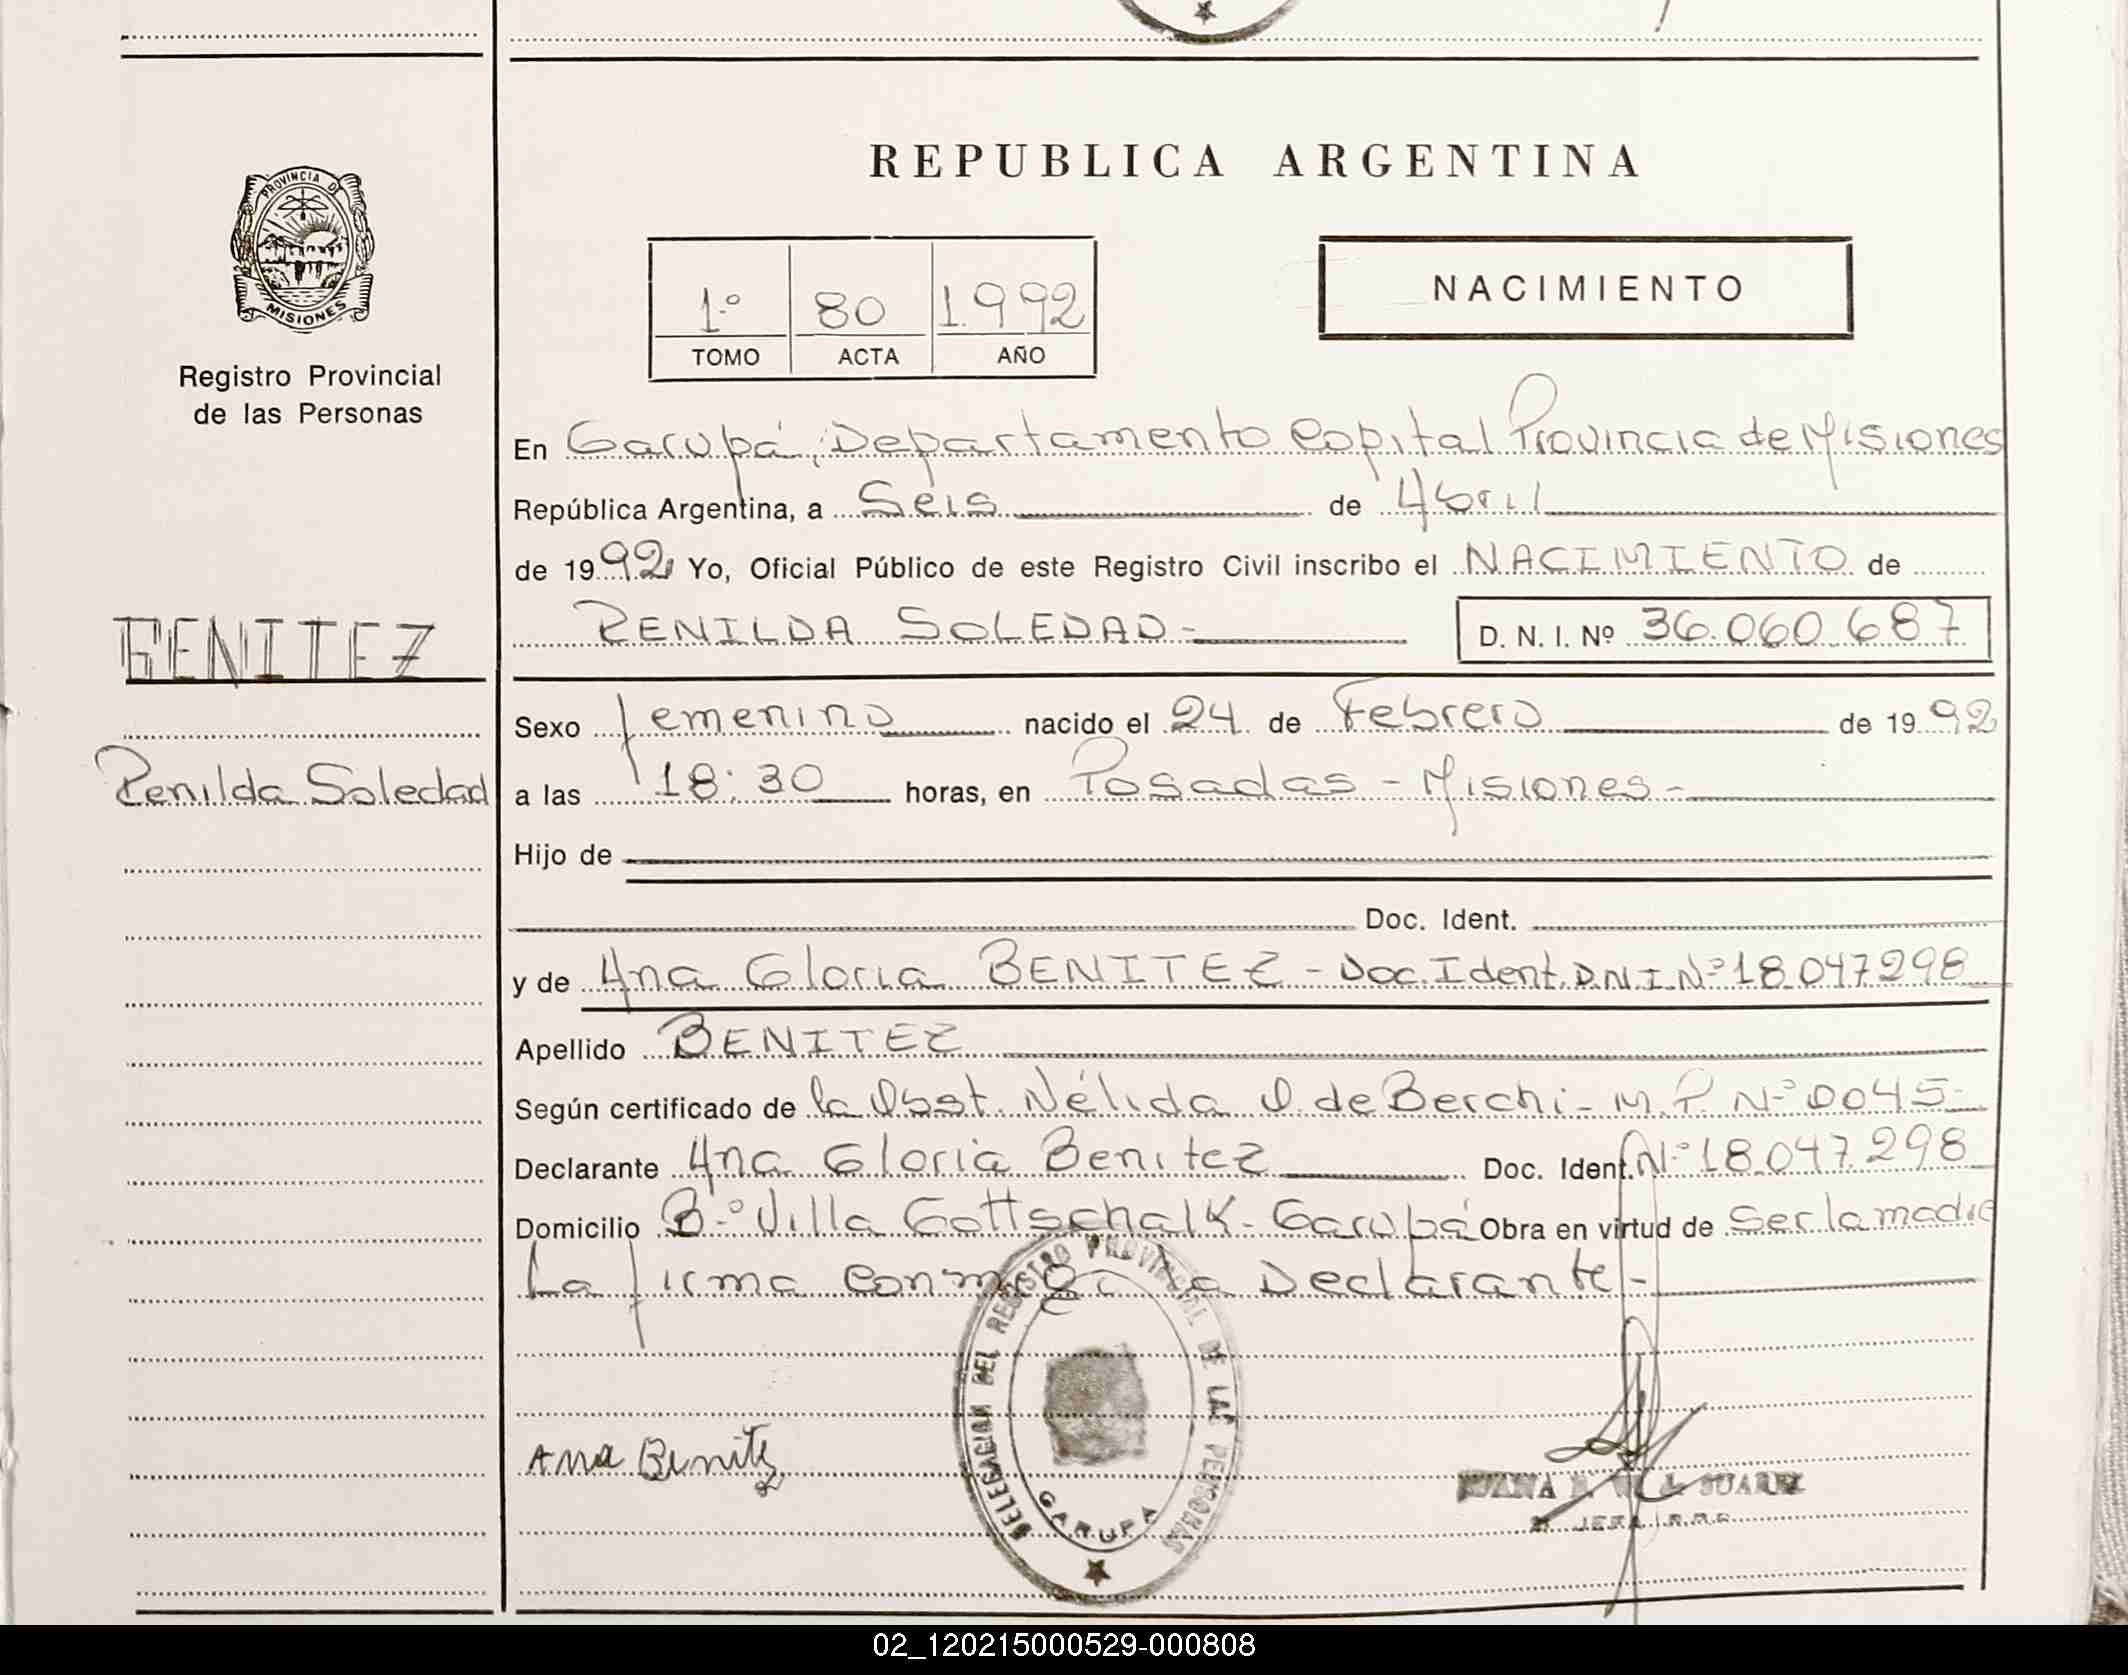 PROVINCIA D
MISIONES
Registro Provincial
de las Personas
BENITEZ
Renilda Soledad
REPUBLICA ARGENTINA
1º 80 1992
TOMO ACTA AÑO
NACIMIENTO
En Garupá, Departamento Capital Provincia de Misiones
República Argentina, a Seis de Abril
de 1992 Yo, Oficial Público de este Registro Civil inscribo el NACIMIENTO de
RENILDA SOLEDAD - D. N. I. Nº 36.060.687
Sexo femenino nacido el 24 de Febrero de 1992
a las 18:30 horas, en Posadas - Misiones -
Hijo de
Doc. Ident.
y de Ana Gloria BENITEZ - Doc. Ident. D.N.I. Nº 18.047.298
Apellido BENITEZ
Según certificado de la Obst. Nélida O. de Berchi - M.P. Nº 0045 -
Declarante Ana Gloria Benitez Doc. Ident. Nº 18.047.298
Domicilio Bº Villa Gottschalk - Garupá Obra en virtud de ser la madre
La firma conmigo la Declarante -
DELEGACION DEL REGISTRO PROVINCIAL DE LAS PERSONAS
GARUPA
Ana Benitez
JUANA SUAREZ
JEFA R.P.P.
02_120215000529-000808